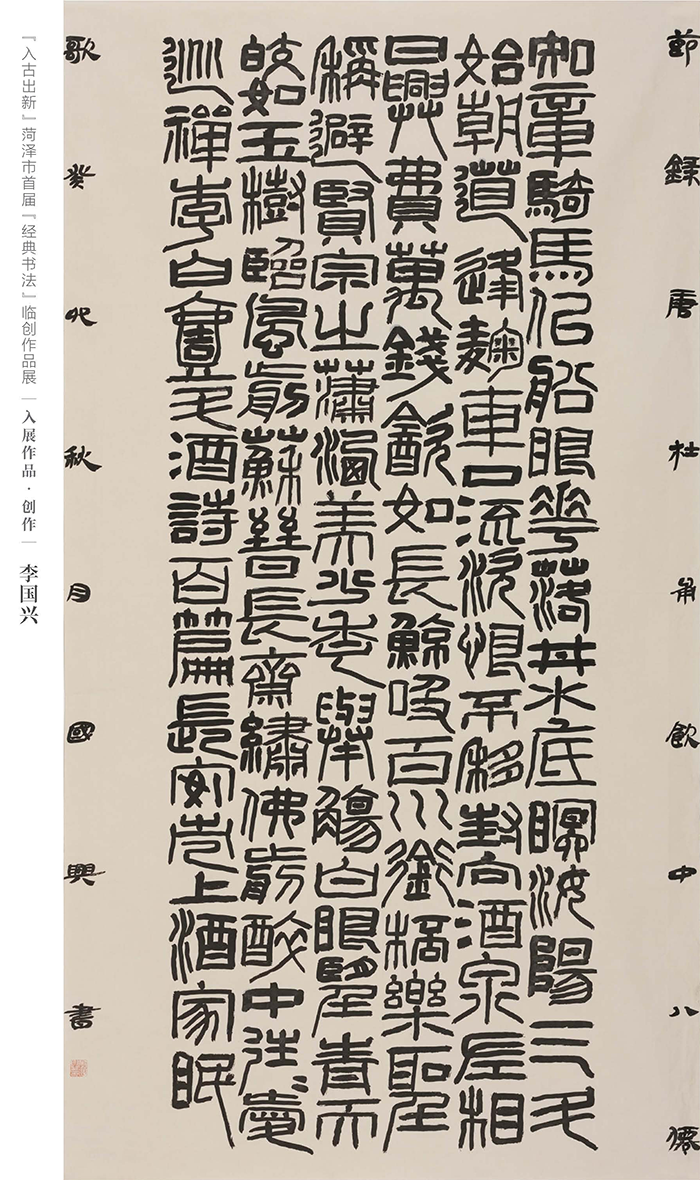 節錄唐杜甫飲中八僊
知章騎馬佀船眼華落井水底眠汝陽三斗
始朝道逢麴車口流涎恨不移封向酒泉左相
日興費萬錢飲如長鯨吸百川銜桮樂聖
稱避賢宗之瀟灑美少年舉觴白眼望青天
皎如玉樹臨風前蘇晉長齋繡佛前醉中往〻愛
逃禪李白壹斗酒詩百篇長安市上酒家眠
歌癸卯秋月國興書
『入古出新』菏泽市首届『经典书法』临创作品展｜入展作品·创作｜李国兴